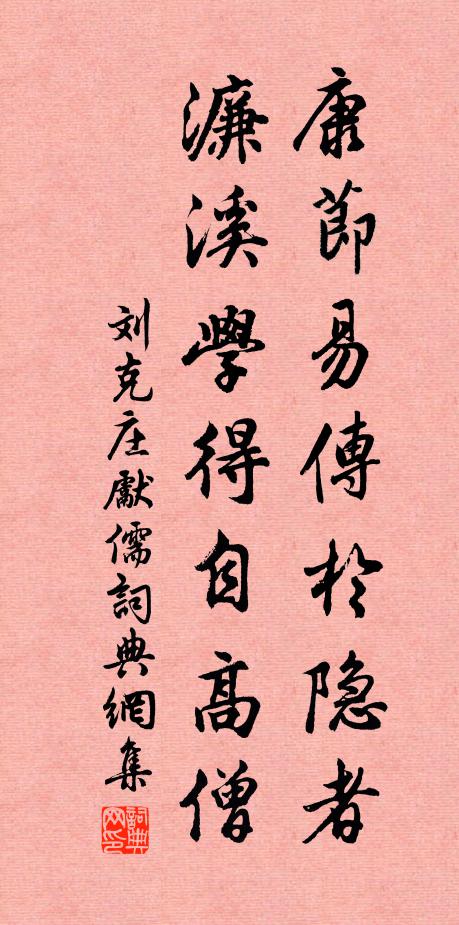 康節易傳於隐者
濂溪學得自高僧
刘克庄獻儒詞典網集
詞典網印